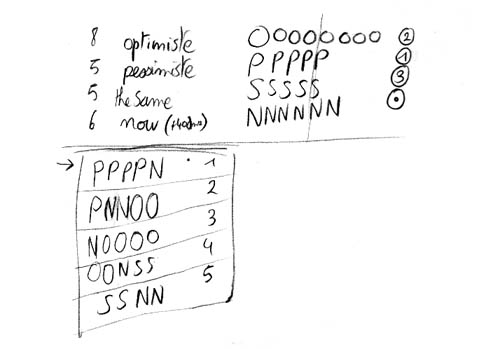 8 optimiste OOOOOOOO 2
5 pessimiste PPPPP 1
5 the same SSSSS 3
6 now NNNNNN
→ PPPPN 1
PNNOO 2
NOOOO 3
OONSS 4
SSNN 5